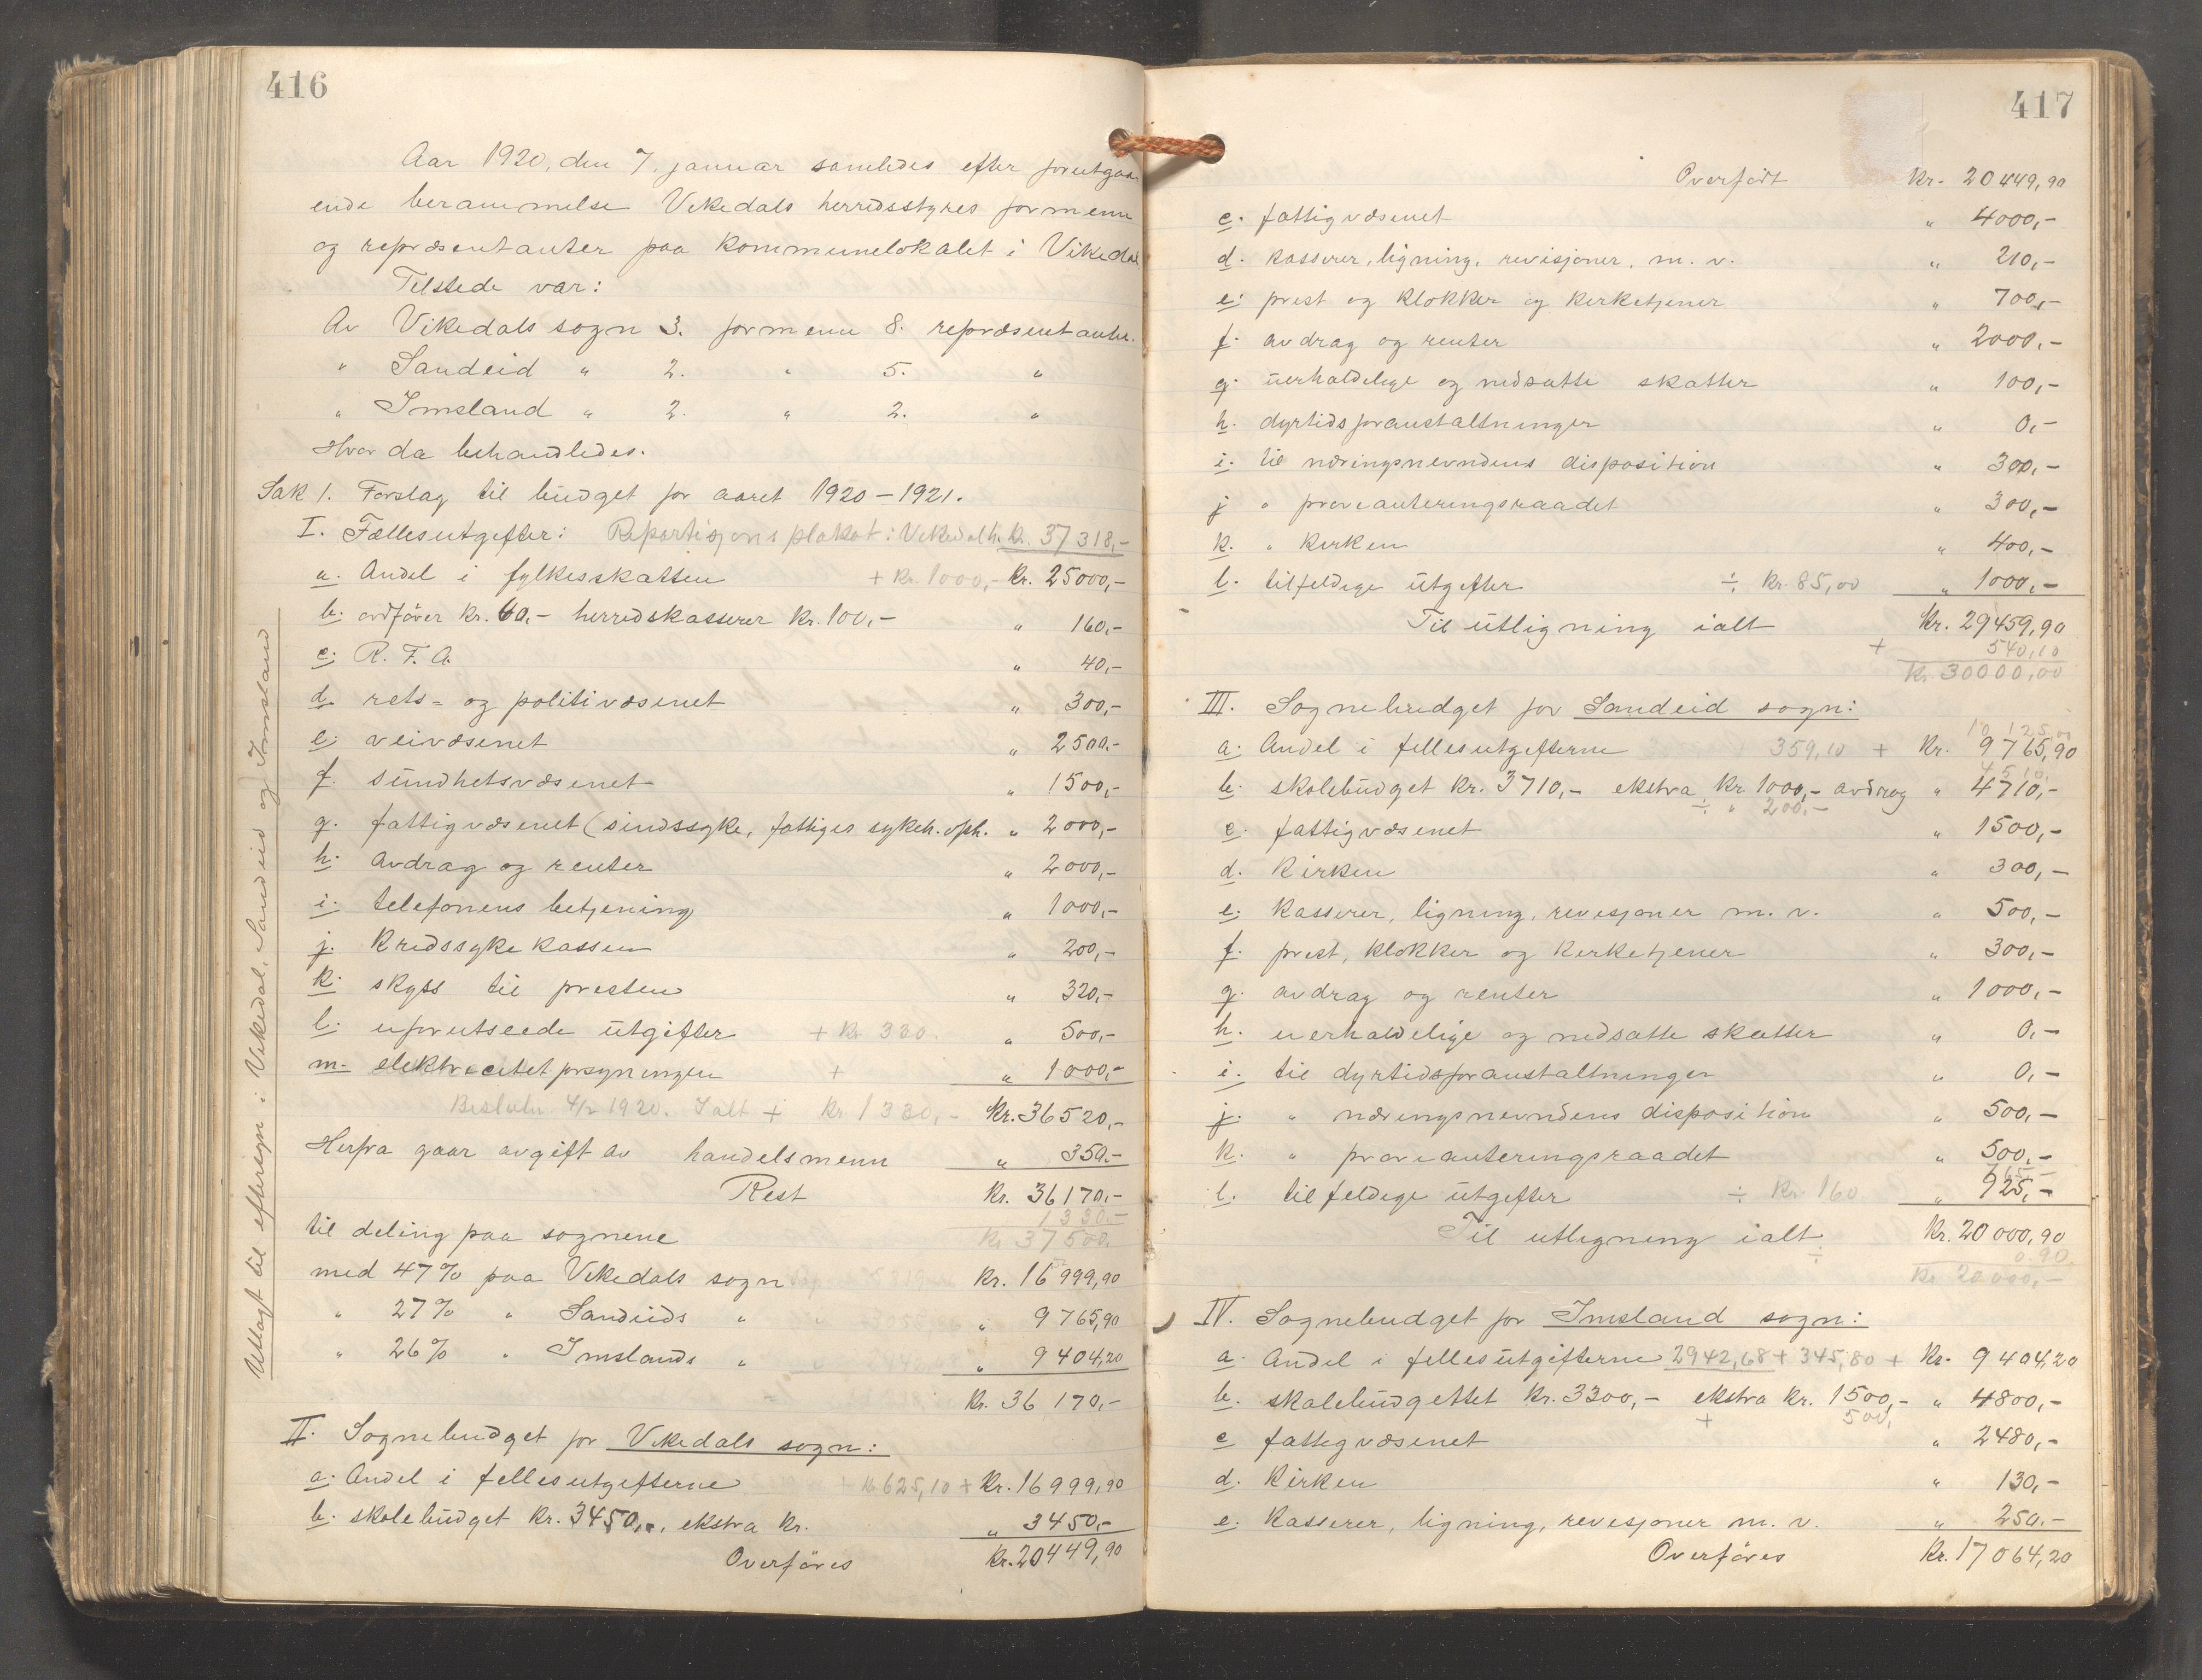 416
Aar 1920, den 7. januar samledes efter forutgaa-
ende berammelse Vikedals herredsstyres formenn
og repræsentanter paa kommunelokalet i Vikedal
Tilstede var:
Av Vikedals sogn 3. formenn 8. repræsentanter.
" Sandeid " 2. " 5. "
" Imsland " 2. " 2. "
Hvor da behandledes.
Sak 1. Forslag til budget for aaret 1920-1921.
I. Fællesutgifter: Repartisjons plakat: Vikedal h. Kr. 37318,-
a. Andel i fylkesskatten + Kr. 1000,- Kr. 25000,-
b. ordfører kr. 60,- herredskasserer kr. 100,- " 160,-
c. R. F. A. " 40,-
d. rets- og politivæsenet " 300,-
e. veivæsenet " 2500,-
f. sundhetsvæsenet " 1500,-
g. fattigvæsenet (sindssyke, fattiges sykeh. oph. " 2000,-
h. avdrag og renter " 2000,-
i. telefonens betjening " 1000,-
j. Kredssykekassen " 200,-
k. skyss til presten " 320,-
l. uforutseede utgifter + Kr 330. " 500,-
m. elektrecitetforsyningen + " 1000,-
Beslutn. 4/2 1920. Ialt + Kr 1330,- Kr. 36520,-
Herfra gaar avgift av handelsmenn " 350.-
Rest Kr. 36170,-
1330.-
til deling paa sognene Kr 37500,
med 47% paa Vikedals sogn Kr. 16999,90
" 27% " Sandeids " " 9765,90
" 26% " Imslands " " 9404,20
Kr. 36 170,-
II. Sognebudget for Vikedals sogn:
a. Andel i fellesutgifterne + Kr 625,10 + Kr. 16999,90
b. skolebudget kr. 3450,-, ekstra kr. " 3450,-
Overføres Kr. 20449,90
Utlagt til eftersyn i Vikedal, Sandeid og Imsland
417
Overført Kr. 20449,90
c. fattigvæsenet " 4000,-
d. kasserer, ligning, revisjoner, m. v. " 210,-
e. prest og klokker og kirketjener " 700,-
f. avdrag og renter " 2000,-
g. uerholdelige og nedsatte skatter " 100,-
h. dyrtidsforanstaltninger " 0,-
i. til næringsnevndens disposition " 300,-
j " proveanteringsraadet " 300,-
k. " kirken " 400,-
l. tilfeldige utgifter ÷ Kr. 85,00 " 1000,-
Til utligning ialt Kr. 29459,90
+ 540,10
Kr. 30000,00
III. Sognebudget for Sandeid sogn:
10 125,00
a. Andel i fellesutgifterne 359,10 + Kr. 9765,90
4510,
b. skolebudget kr. 3710,- ekstra Kr 1000,- avdrag " 4710,-
÷ " 200,-
c. fattigvæsenet " 1500,-
d. Kirken " 300,-
e. Kasserer, ligning, revisjoner m. v. " 500,-
f. prest, klokker og kirketjener " 300,-
g. avdrag og renter " 1000,-
h. uerholdelige og nedsatte skatter " 0,-
i. til dyrtidsforanstaltninger " 0,-
j. " næringsnevndens disposition " 500,-
k. " proveanteringsraadet " 500,-
765
l. tilfeldige utgifter ÷ Kr 160 " 925,-
Til utligning ialt Kr. 20 000,90
÷ 0.90
Kr 20000,-
IV. Sognebudget for Imsland sogn:
a. Andel i fellesutgifterne 2942,68 + 345,80 + Kr. 9404,20
b. skolebudgettet kr. 3300,- ekstra kr. 1500,- " 4800,-
+ 500,
c fattigvæsenet " 2480,-
d. Kirken " 130,-
e. Kasserer, ligning, revisjoner m. v. " 250.-
Overføres Kr. 17064,20